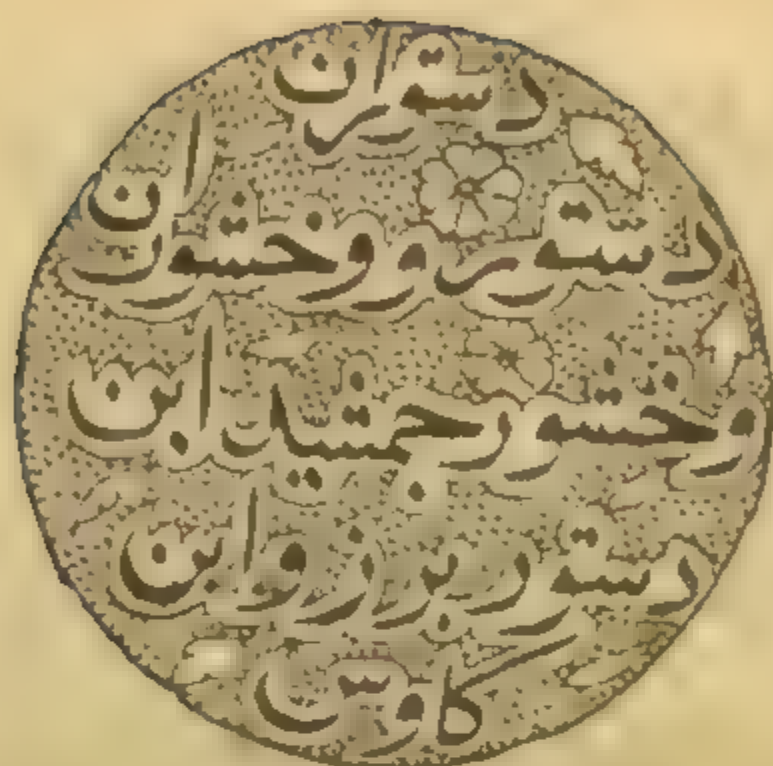 دستوران
دستور و وخشوران
وخشور جمشید ابن
دستور برزو ابن
کاوس